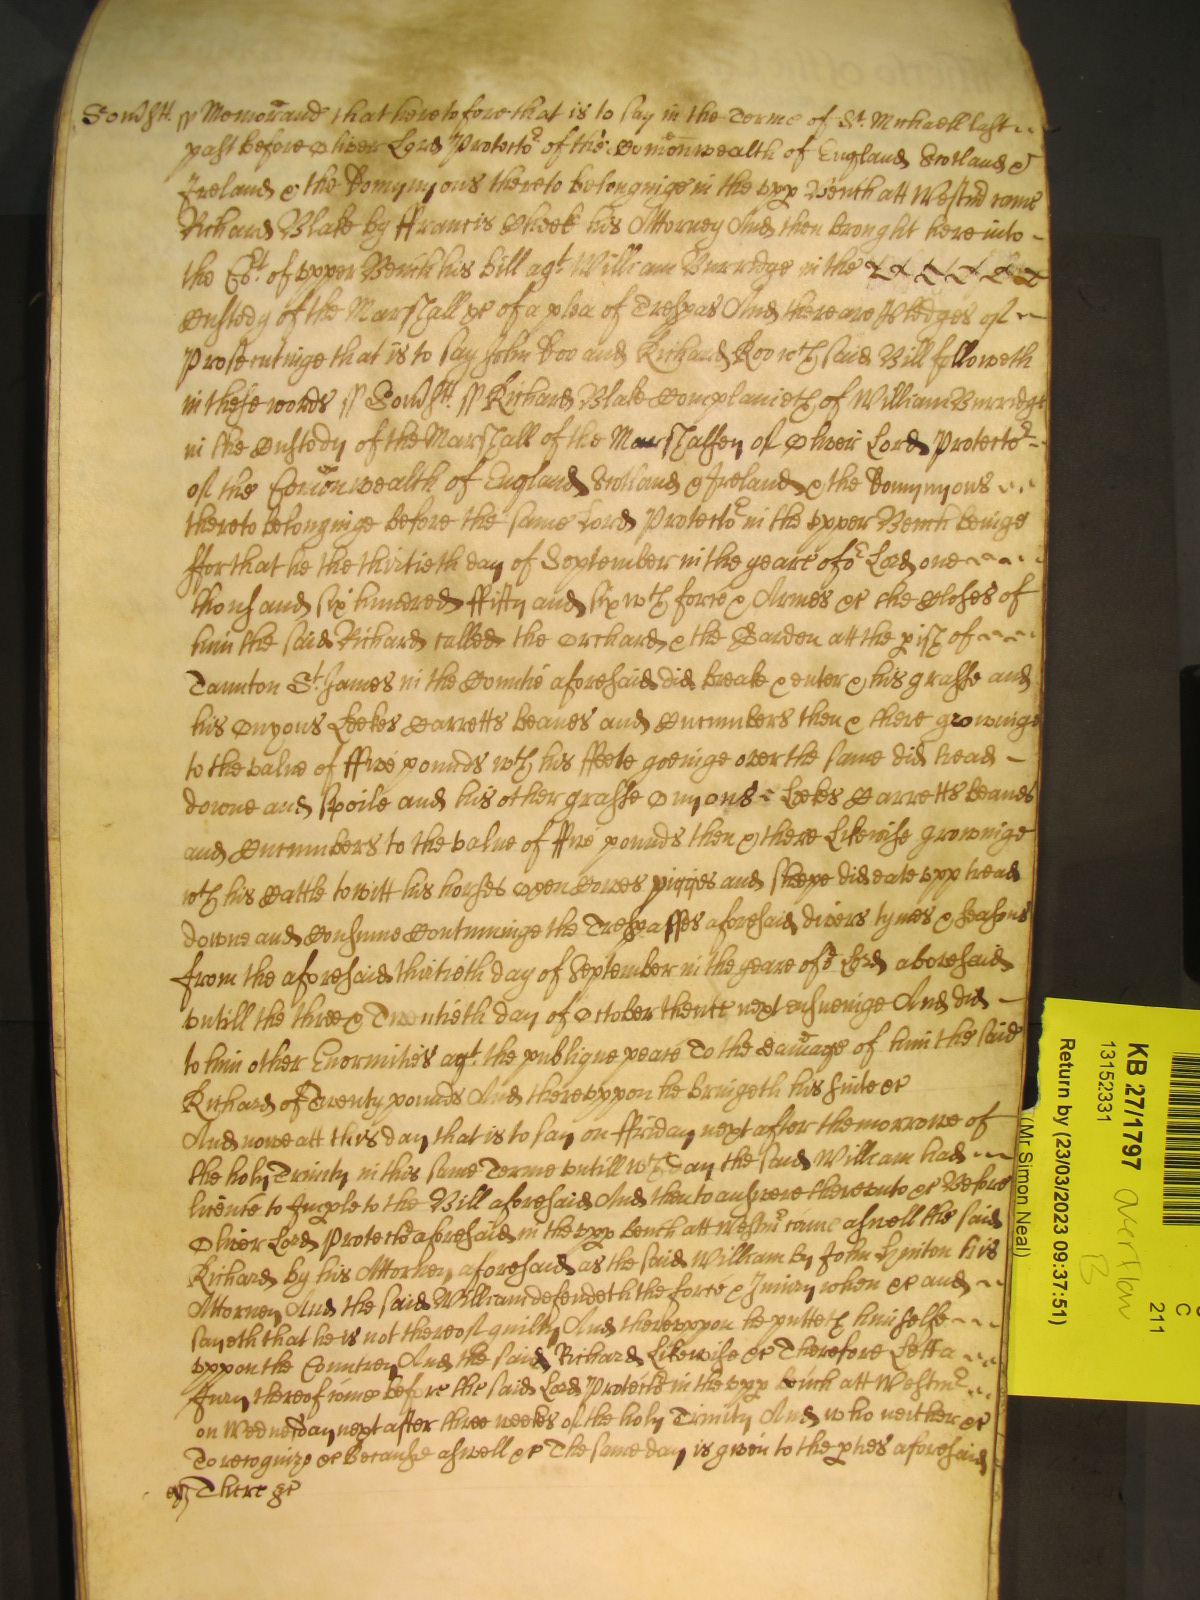 Som̃sett. ss Memorand that heretofore that is to say in the Terme of St. Michaell last
past before Oliver Lord Protector of the Com̃onwealth of England Scotland &
Ireland & the Domynyons thereto belonginge in the upp Bench att Westmr came
Richard Blake by ffrancis Cheek his Attorney And then brought here into
the Cort. of upper Bench his bill agt. William Burridge in the
Custody of the Marshall &c of a plea of Trespas And there are Pledges of
Prosecutinge that is to say John Doo and Richard Roo wch said Bill followeth
in these words ss Som̃sett. ss Richard Blake Complaineth of William Burridge
in the Custody of the Marshall of the Marshalsey of Oliver Lord Protector
of the Com̃onwealth of England Scotland & Ireland & the Domynyons
thereto belonginge before the same Lord Protector in the upper Bench beinge
ffor that he the thirtieth day of September in the yeare of or Lord one
thousand six hundred ffifty and six wth force & Armes &c the Closes of
him the said Richard called the Orchard & the Garden att the pish of
Taunton St. James in the Countie aforesaid did breake & enter & his grasse and
his Onyons Leekes Carretts beanes and Cucumbers then & there growinge
to the value of ffive pounds wth his ffeete goeinge over the same did tread
downe and spoile and his other grasse Onyons Leekes Carretts beanes
and Cucumbers to the value of ffive pounds then & there Likewise growinge
wth his Cattle to witt his horses oxen Cowes pigges and sheepe did eate upp tread
downe and Consume Contynuinge the Trespasses aforesaid divers tymes & seasons
from the aforesaid thirtieth day of September in the yeare of or Lord abovesaid
untill the three & Twentieth day of October thence next ensueinge And did
to him other Enormities agt. the publique peace To the dam̃age of him the said
Richard of Twenty pounds And thereuppon he bringeth his suite &c
And nowe att this day that is to say on ffriday next after the morrowe of
the holy Trinity in this same Terme untill wch day the said William had
licence to Imple to the Bill aforesaid And then to answere thereunto &c Before
Oliver Lord Protector aforesaid in the upp bench att Westmr came aswell the said
Richard by his Attorney aforesaid as the said William by John Hyniton his
Attorney And the said William defendeth the force & Iniury when &c and
sayeth that he is not thereof guilty And thereuppon he putteth himselfe
uppon the Countrey And the said Richard Likewise &c Therefore Lett a
Jury thereof come before the said Lord Protector in the upp bench att Westmr
on Wednesday next after three weekes of the holy Trinity And who neither &c
To recognize &c Because aswell &c The same day is given to the pties aforesaid
There &c
KB 27/1797
13152331
Return by (23/03/2023 09:37:51)
(Mr Simon Neal)
Overflow
B
C
211